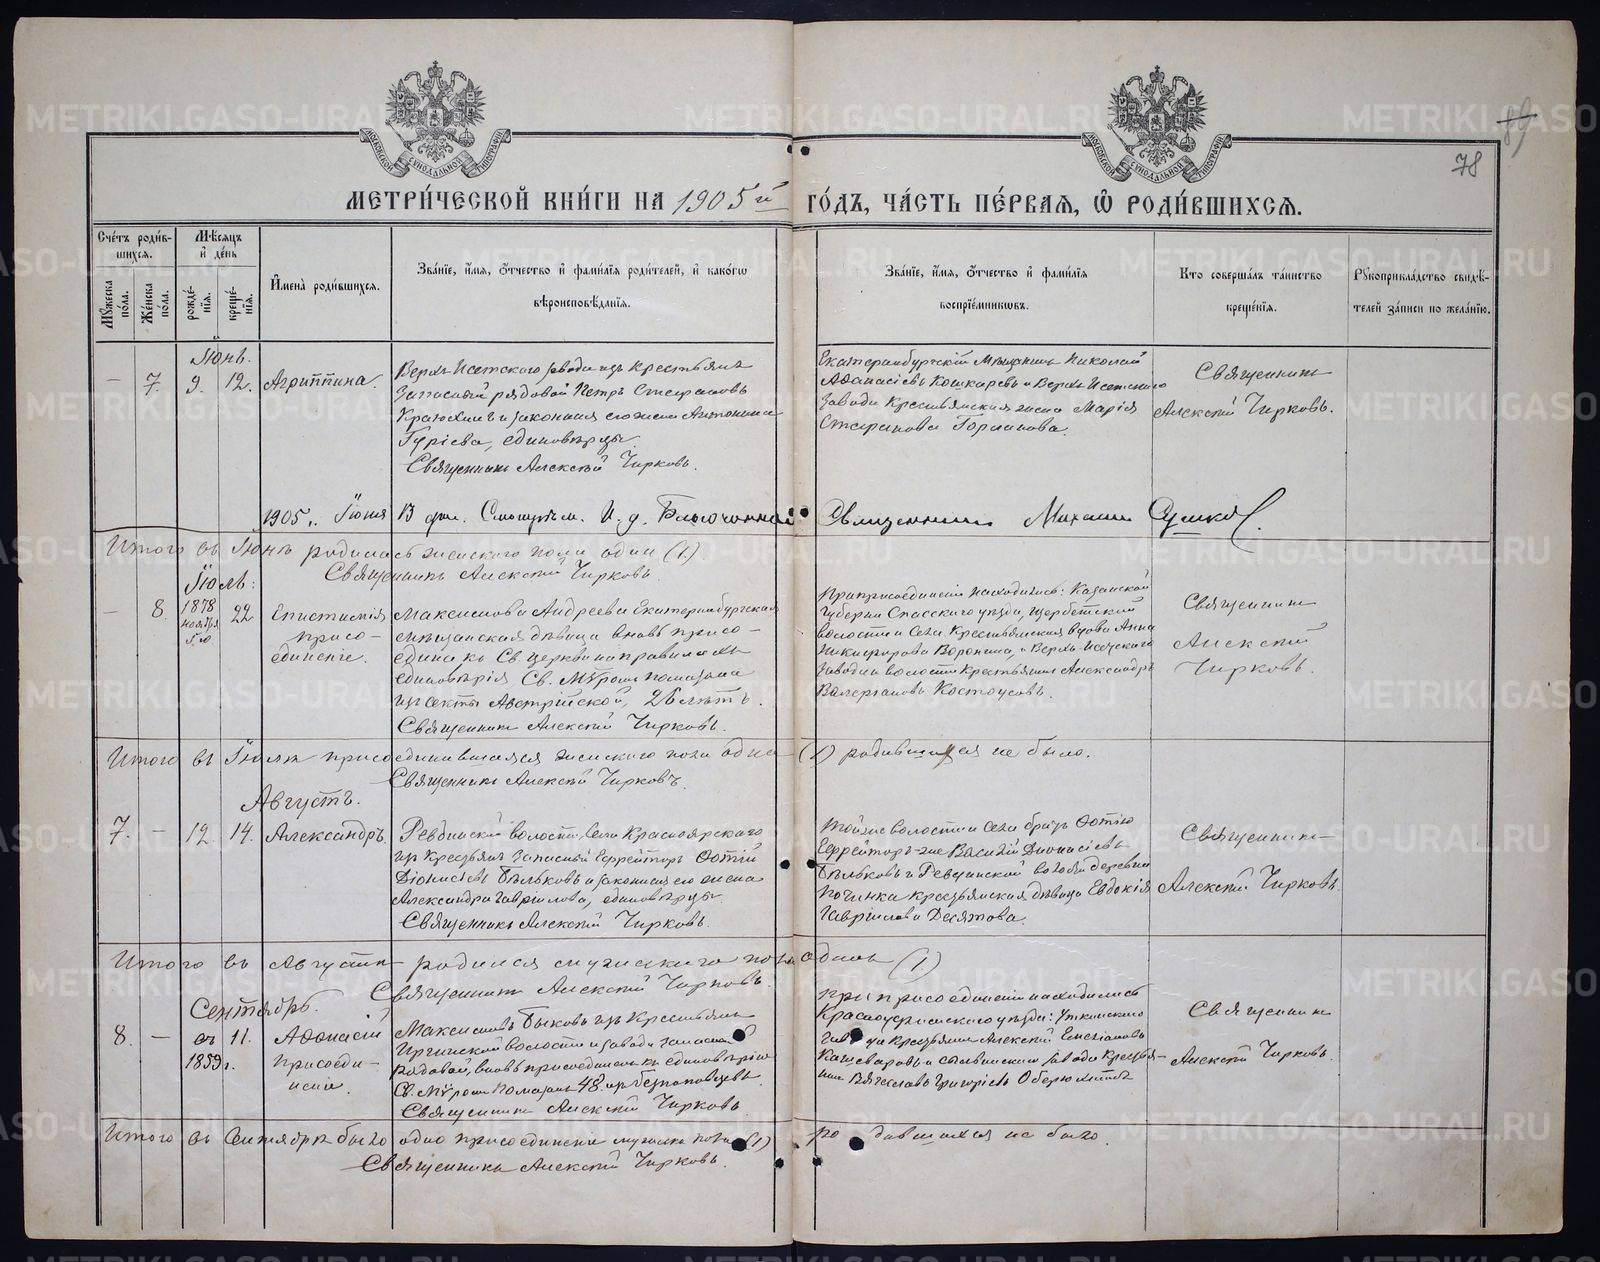 89
78
МОСКОВСКОЙ СУНОДАЛЬНОЙ ТИПОГРАФІИ
МОСКОВСКОЙ СУНОДАЛЬНОЙ ТИПОГРАФІИ
МЕТРИ́ЧЕСКОЙ КНИ́ГИ НА 1905й ГО́ДЪ, ЧА́СТЬ ПЕ́РВАѦ, Ѡ҆ РОДИ́ВШИХСѦ.
Сче́тъ роди́вшихсѧ.
Мꙋ́жеска по́ла.
Же́нска по́ла.
Мѣ́сѧцъ и҆ де́нь
рожде́нїѧ.
креще́нїѧ.
И҆мена̀ роди́вшихсѧ.
Зва́нїе, и҆́мѧ, ѻ҆́тчество и҆ фами́лїѧ роди́телей, и҆ како́гѡ
вѣроисповѣ́данїѧ.
Зва́нїе, и҆́мѧ, ѻ҆́тчество и҆ фами́лїѧ
воспрїе́мникѡвъ.
Кто̀ соверша́лъ та́инство
креще́нїѧ.
Рꙋкоприкла́дство свидѣ́-
телей за́писи по жела́нїю.
Іюнь.
— 7. 9. 12. Агриппина.
Верхъ Исетскаго завода изъ крестьянъ
запасный рядовой Петръ Стефановъ
и законная его жена Антонина
Гуріева, единовѣрцы.
Священникъ Алексѣй Чирковъ.
Екатеринбургскій мѣщанинъ Николай
Аѳанасіевъ Кошкаревъ и Верхъ-Исетскаго
завода крестьянская жена Марія
Стефанова
Священникъ
Алексѣй Чирковъ.
1905. Іюня
И. д. Благочиннаго Священникъ Михаилъ
Итого въ Іюнѣ родилась женскаго пола одна (1).
Священникъ Алексѣй Чирковъ.
Іюль.
— 8. 1878 ноября 22
присоединеніе.
Максимова Андреева Екатеринбургская
мѣщанская дѣвица вновь присо-
единена къ Св. церкви на правилахъ
единовѣрія Св. Мѵромъ помазана
изъ секты Австрійской, 26 лѣтъ.
Священникъ Алексѣй Чирковъ.
При присоединеніи находились: Казанской
губерніи Спасскаго уѣзда,
волости и села крестьянская вдова Анна
Никифорова Воронина, и Верхъ-Исетскаго
завода и волости крестьянинъ Александръ
Валеріановъ Костоусовъ.
Священникъ
Алексѣй
Чирковъ.
Итого въ Іюлѣ присоединившаяся женскаго пола одна (1) родившихся не было.
Священникъ Алексѣй Чирковъ.
Августъ.
7. — 12. 14. Александръ.
Ревдинской волости, села Красноярскаго
изъ крестьянъ запасный Ефрейторъ Фотій
Діонисіевъ Бѣльковъ и законная его жена
Александра Гавріилова, единовѣрцы
Священникъ Алексѣй Чирковъ.
Той же волости и села братъ Фотію
Ефрейторъ-же Василій Діонисіевъ
Бѣльковъ и Ревдинской волости деревни
Починка крестьянская дѣвица Евдокія
Гавріилова Десятова.
Священникъ
Алексѣй Чирковъ.
Итого въ Августѣ родился мужскаго пола одинъ (1)
Священникъ Алексѣй Чирковъ.
Сентябрь.
8. — 1859 г. 11. Аѳанасій
присоеди-
неніе.
Максимовъ Быковъ изъ крестьянъ
Иргинской волости и завода запасный
рядовой, вновь присоединенъ къ единовѣрію
Св. Мѵромъ помазанъ 48. изъ безпоповцевъ.
Священникъ Алексѣй Чирковъ.
При присоединеніи находились
Красноуфимскаго уѣзда: Уткинскаго
завода крестьянинъ Алексѣй
Кашеваровъ и завода крестья-
нинъ Вячеславъ Григорьевъ Оберюхтинъ
Священникъ
Алексѣй Чирковъ.
Итого въ Сентябрѣ было одно присоединеніе мужска пола (1) родившихся не было.
Священникъ Алексѣй Чирковъ.
METRIKI.GASO-URAL.RU